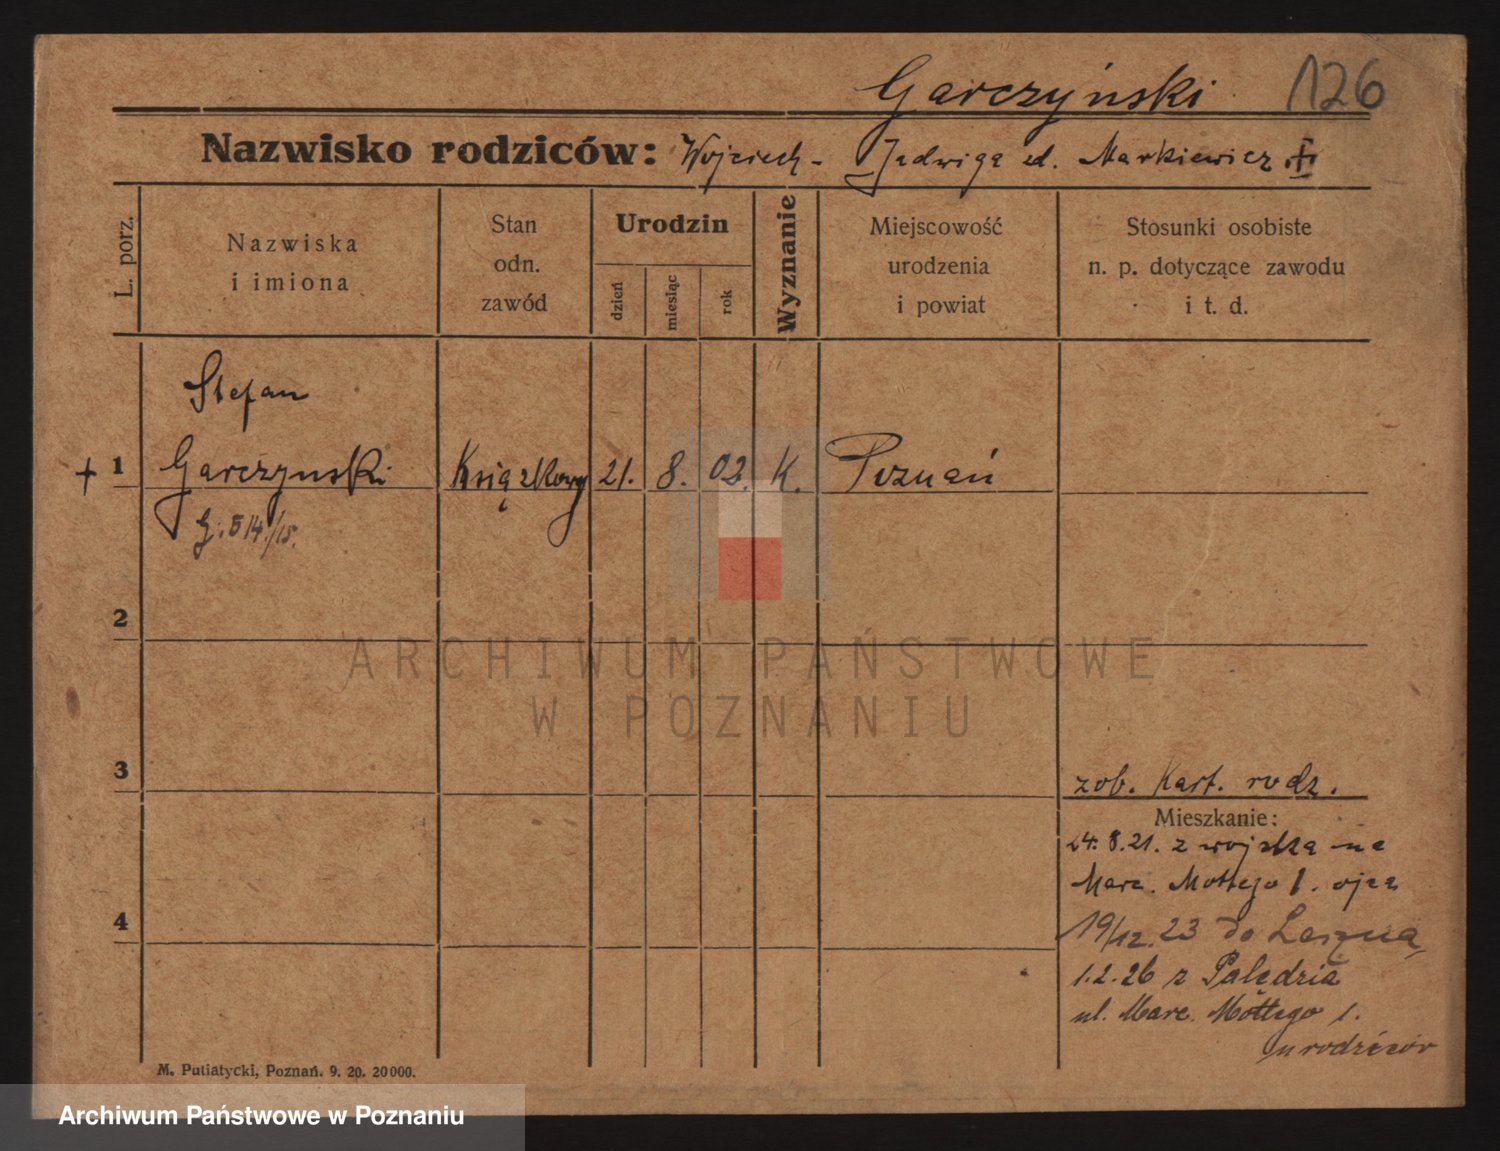 Garczyński 126
Nazwisko rodziców: Wojciech - Jadwiga zd. Markiewicz
L. porz.
Nazwiska
i imiona
Stan
odn.
zawód
Urodzin
dzień
miesiąc
rok
Wyznanie
Miejscowość
urodzenia
i powiat
Stosunki osobiste
n. p. dotyczące zawodu
i t. d.
Stefan
+ 1 Garczynski Książkowy 21. 8. 02. K. Poznań
G: 514./15.
2
ARCHIWUM PAŃSTWOWE
W POZNANIU
3
zob. Kart. rodz.
Mieszkanie:
24. 8. 21. z wojska na
Marc. Mottego 1. ojca
4
19/12. 23 do Leszna
1. 2. 26 z Palędzia
ul. Marc. Mottego 1.
u rodziców
M. Putiatycki, Poznań. 9. 20. 20000.
Archiwum Państwowe w Poznaniu